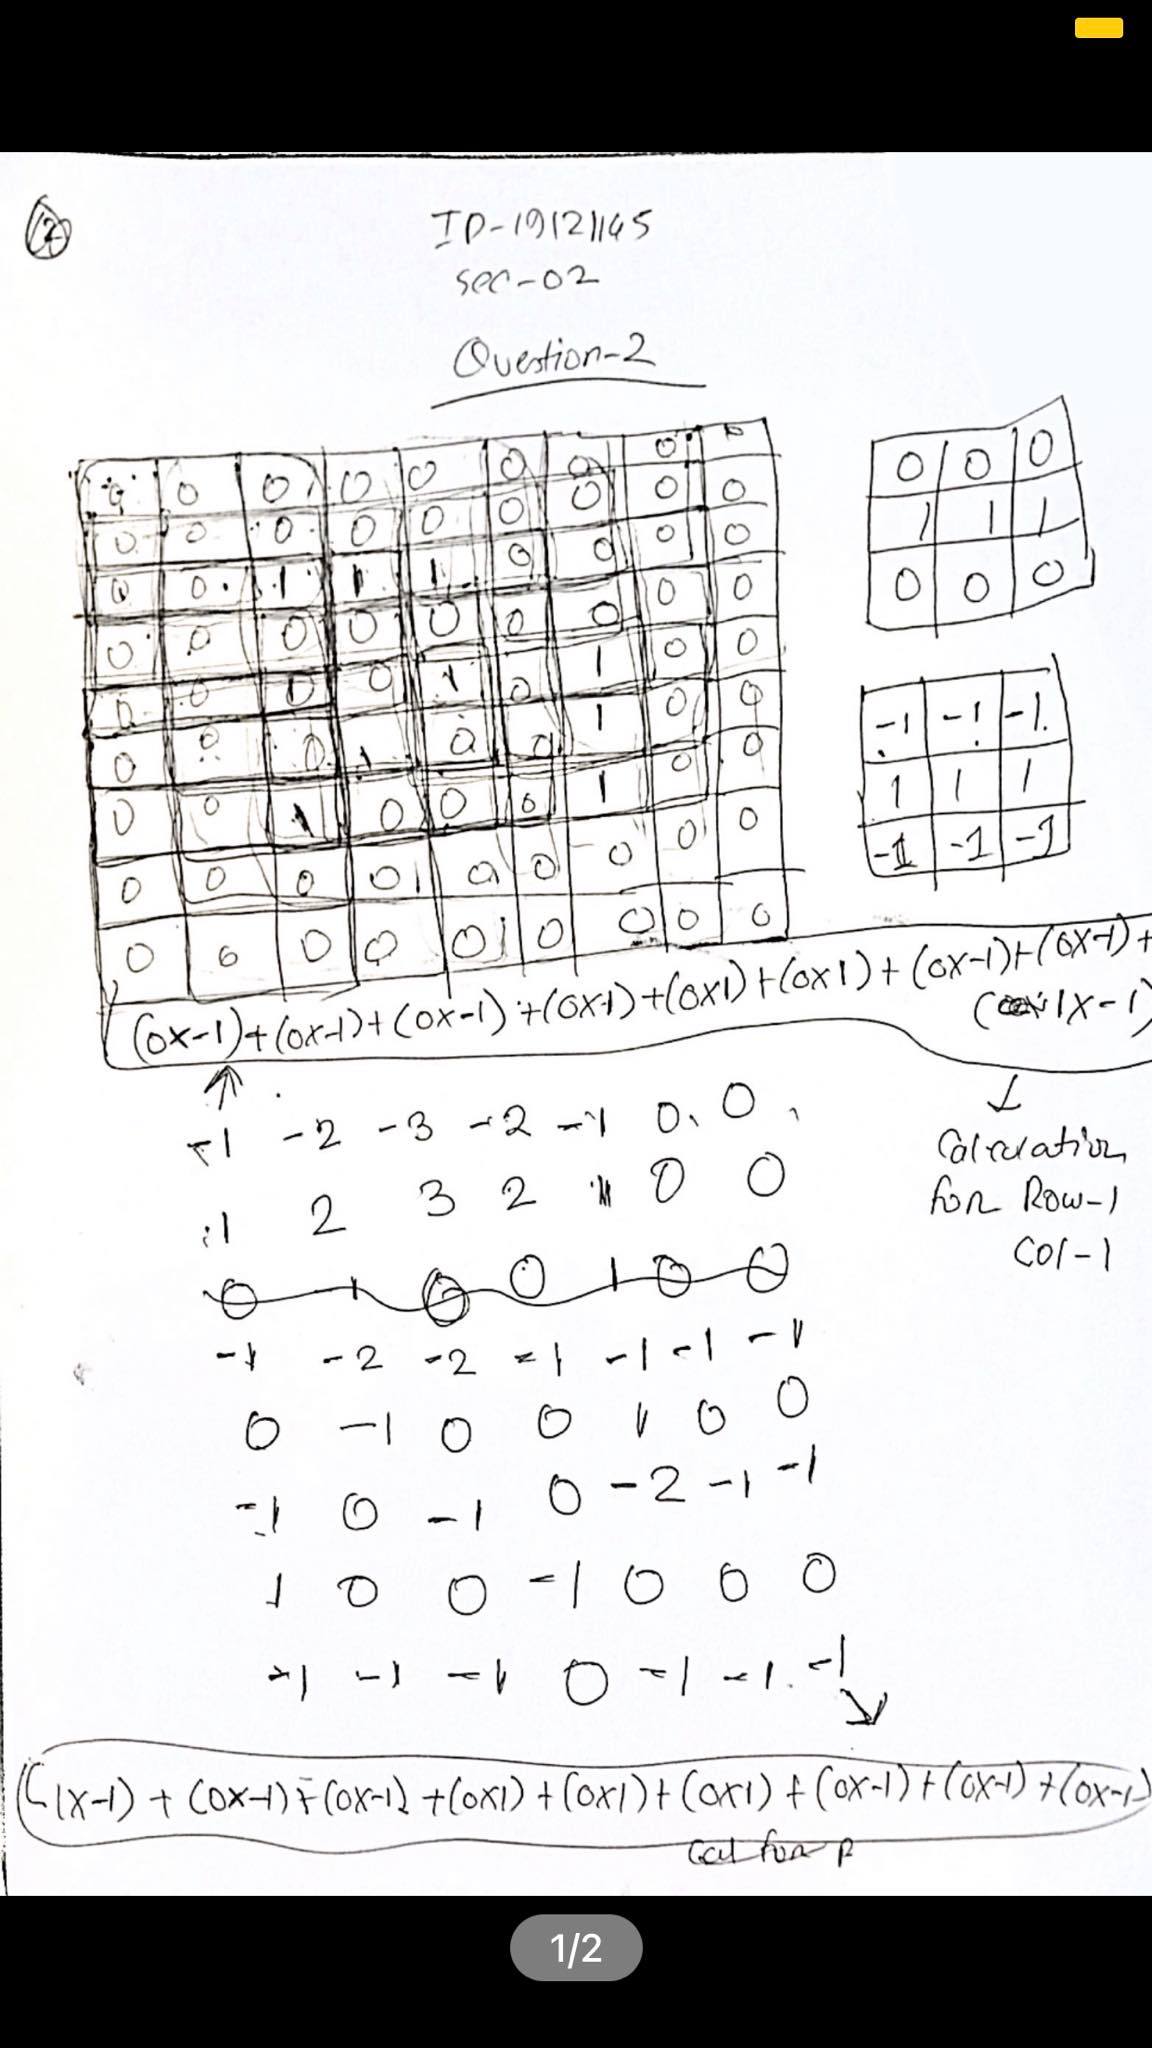 2
ID-19121145
Sec-02
Question-2
0 0 0 0 0 0 0 0
0 0 0 0 0 0 0 0 0
0 0 1 1 1 0 0 0 0
0 0 0 0 0 0 0 0 0
0 0 0 0 1 0 1 0 0
0 0 0 1 0 0 1 0 0
0 0 1 0 0 0 1 0 0
0 0 0 0 0 0 0 0 0
0 0 0 0 0 0 0 0 0
0 0 0
1 1 1
0 0 0
-1 -1 -1
1 1 1
-1 -1 -1
(0x-1)+(0x-1)+(0x-1)+(0x1)+(0x1)+(0x1)+(0x-1)+(0x-1)+
(1x-1)
-1 -2 -3 -2 -1 0 0
1 2 3 2 1 0 0
0 1 0 0 1 0 0
-1 -2 -2 -1 -1 -1 -1
0 -1 0 0 1 0 0
-1 0 -1 0 -2 -1 -1
1 0 0 -1 0 0 0
-1 -1 -1 0 -1 -1 -1
Calculation
for Row-1
Col-1
(1x-1)+(0x-1)+(0x-1)+(0x1)+(0x1)+(0x1)+(0x-1)+(0x-1)+(0x-1)
Cal for
1/2